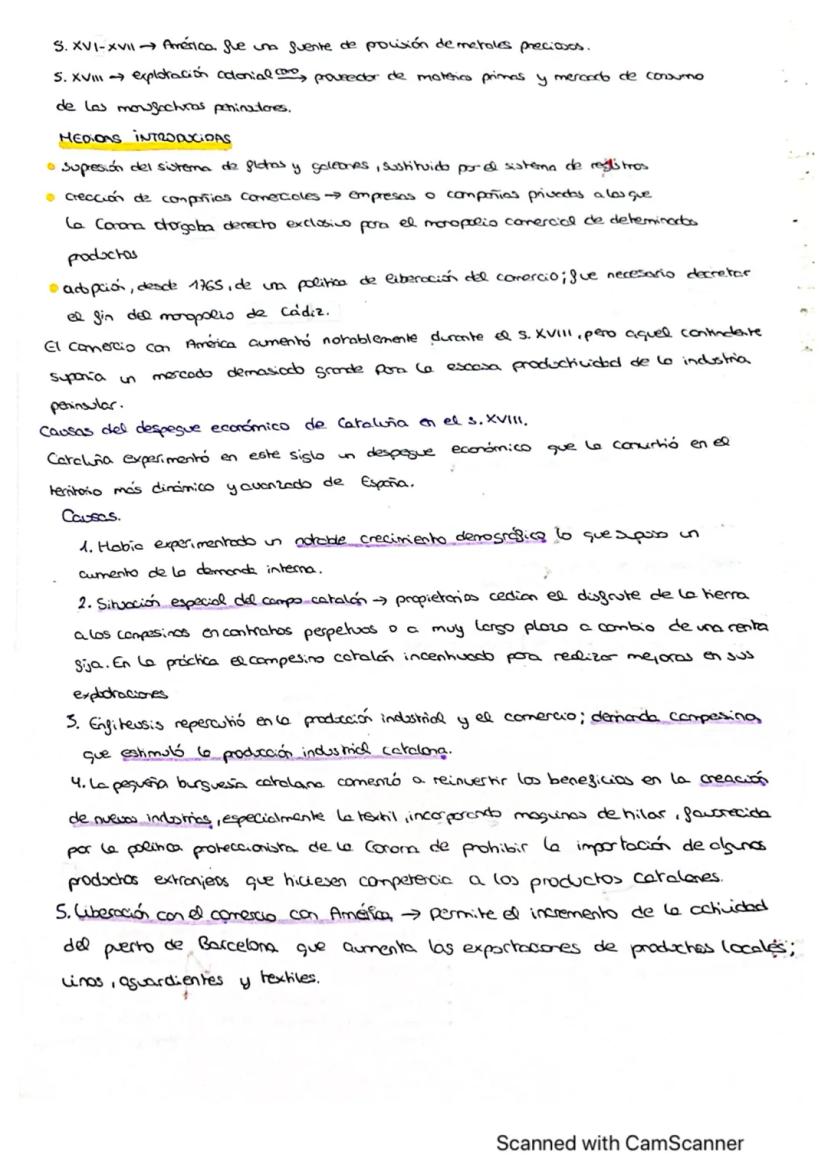 S. XVI-XVII → América fue una fuente de provisión de metales preciosos.
S. XVIII → explotación colonial como proveedor de materias primas y mercado de consumo
de las manufacturas peninsulares.
MEDIDAS INTRODUCIDAS
• supresión del sistema de flotas y galeones, sustituido por el sistema de registros
• creación de compañías comerciales → empresas o compañías privadas a las que
la Corona otorgaba derecho exclusivo para el monopolio comercial de determinados
productos
• adopción, desde 1765, de una política de liberación del comercio; fue necesario decretar
el fin del monopolio de Cádiz.
El comercio con América aumentó notablemente durante el s. XVIII, pero aquel continente
suponía un mercado demasiado grande para la escasa productividad de la industria
peninsular.
Causas del despegue económico de Cataluña en el s. XVIII.
Cataluña experimentó en este siglo un despegue económico que la convirtió en el
territorio más dinámico y avanzado de España.
Causas.
1. Había experimentado un notable crecimiento demográfico lo que supuso un
aumento de la demanda interna.
2. Situación especial del campo catalán → propietarios cedían el disfrute de la tierra
a los campesinos en contratos perpetuos o a muy largo plazo a cambio de una renta
fija. En la práctica el campesino catalán incentivado para realizar mejoras en sus
explotaciones
3. Enfiteusis repercutió en la producción industrial y el comercio; demanda campesina
que estimuló la producción industrial catalana.
4. La pequeña burguesía catalana comenzó a reinvertir los beneficios en la creación
de nuevas industrias, especialmente la textil, incorporando maquinas de hilar, favorecida
por la política proteccionista de la Corona de prohibir la importación de algunos
productos extranjeros que hiciesen competencia a los productos catalanes.
5. Liberación con el comercio con América → permite el incremento de la actividad
del puerto de Barcelona que aumenta las exportaciones de productos locales;
vinos, aguardientes y textiles.
Scanned with CamScanner